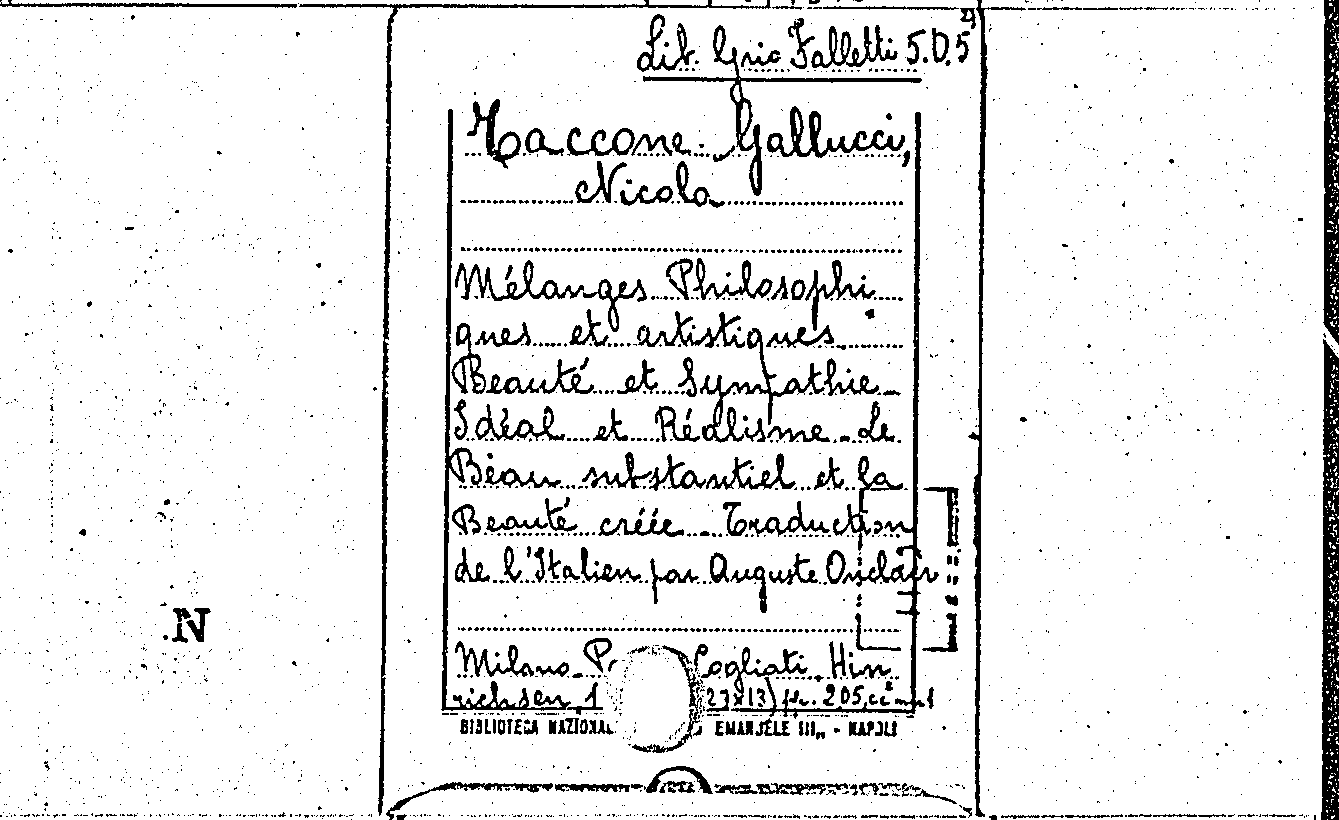 Lib. Grio Falletti 5.D.5
Taccone-Gallucci,
Nicola
Mélanges Philosophi
ques et artistiques.
Beauté et Sympathie -
Idéal et Réalisme - Le
Béau substantiel et la
Beauté créée - Traduction
de l'Italien par Auguste Onclair
N
Milano Cogliati, Hin
richsen, 1 23x13) pp. 205,
BIBLIOTECA NAZIONAL EMANUELE III„ - NAPOLI